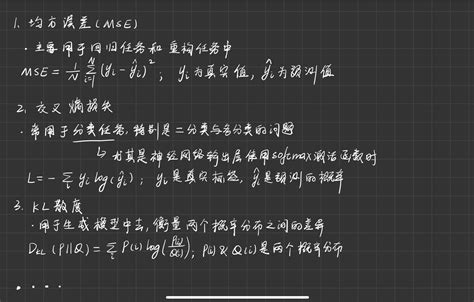 1. 均方误差(MSE)
· 主要用于回归任务和重构任务中
MSE = 1/N ∑_{i=1}^{N} (yi - ŷi)²; yi为真实值, ŷi为预测值
2. 交叉熵损失
· 常用于分类任务, 特别是二分类与多分类的问题
↳ 尤其是神经网络输出层使用softmax激活函数时
L = - ∑_i yi log(ŷi); yi是真实标签, ŷi是预测的概率
3. KL散度
· 用于生成模型中去, 衡量两个概率分布之间的差异
D_KL(P||Q) = ∑_i P(i) log(P(i)/Q(i)); P(i) & Q(i)是两个概率分布
· · · ·